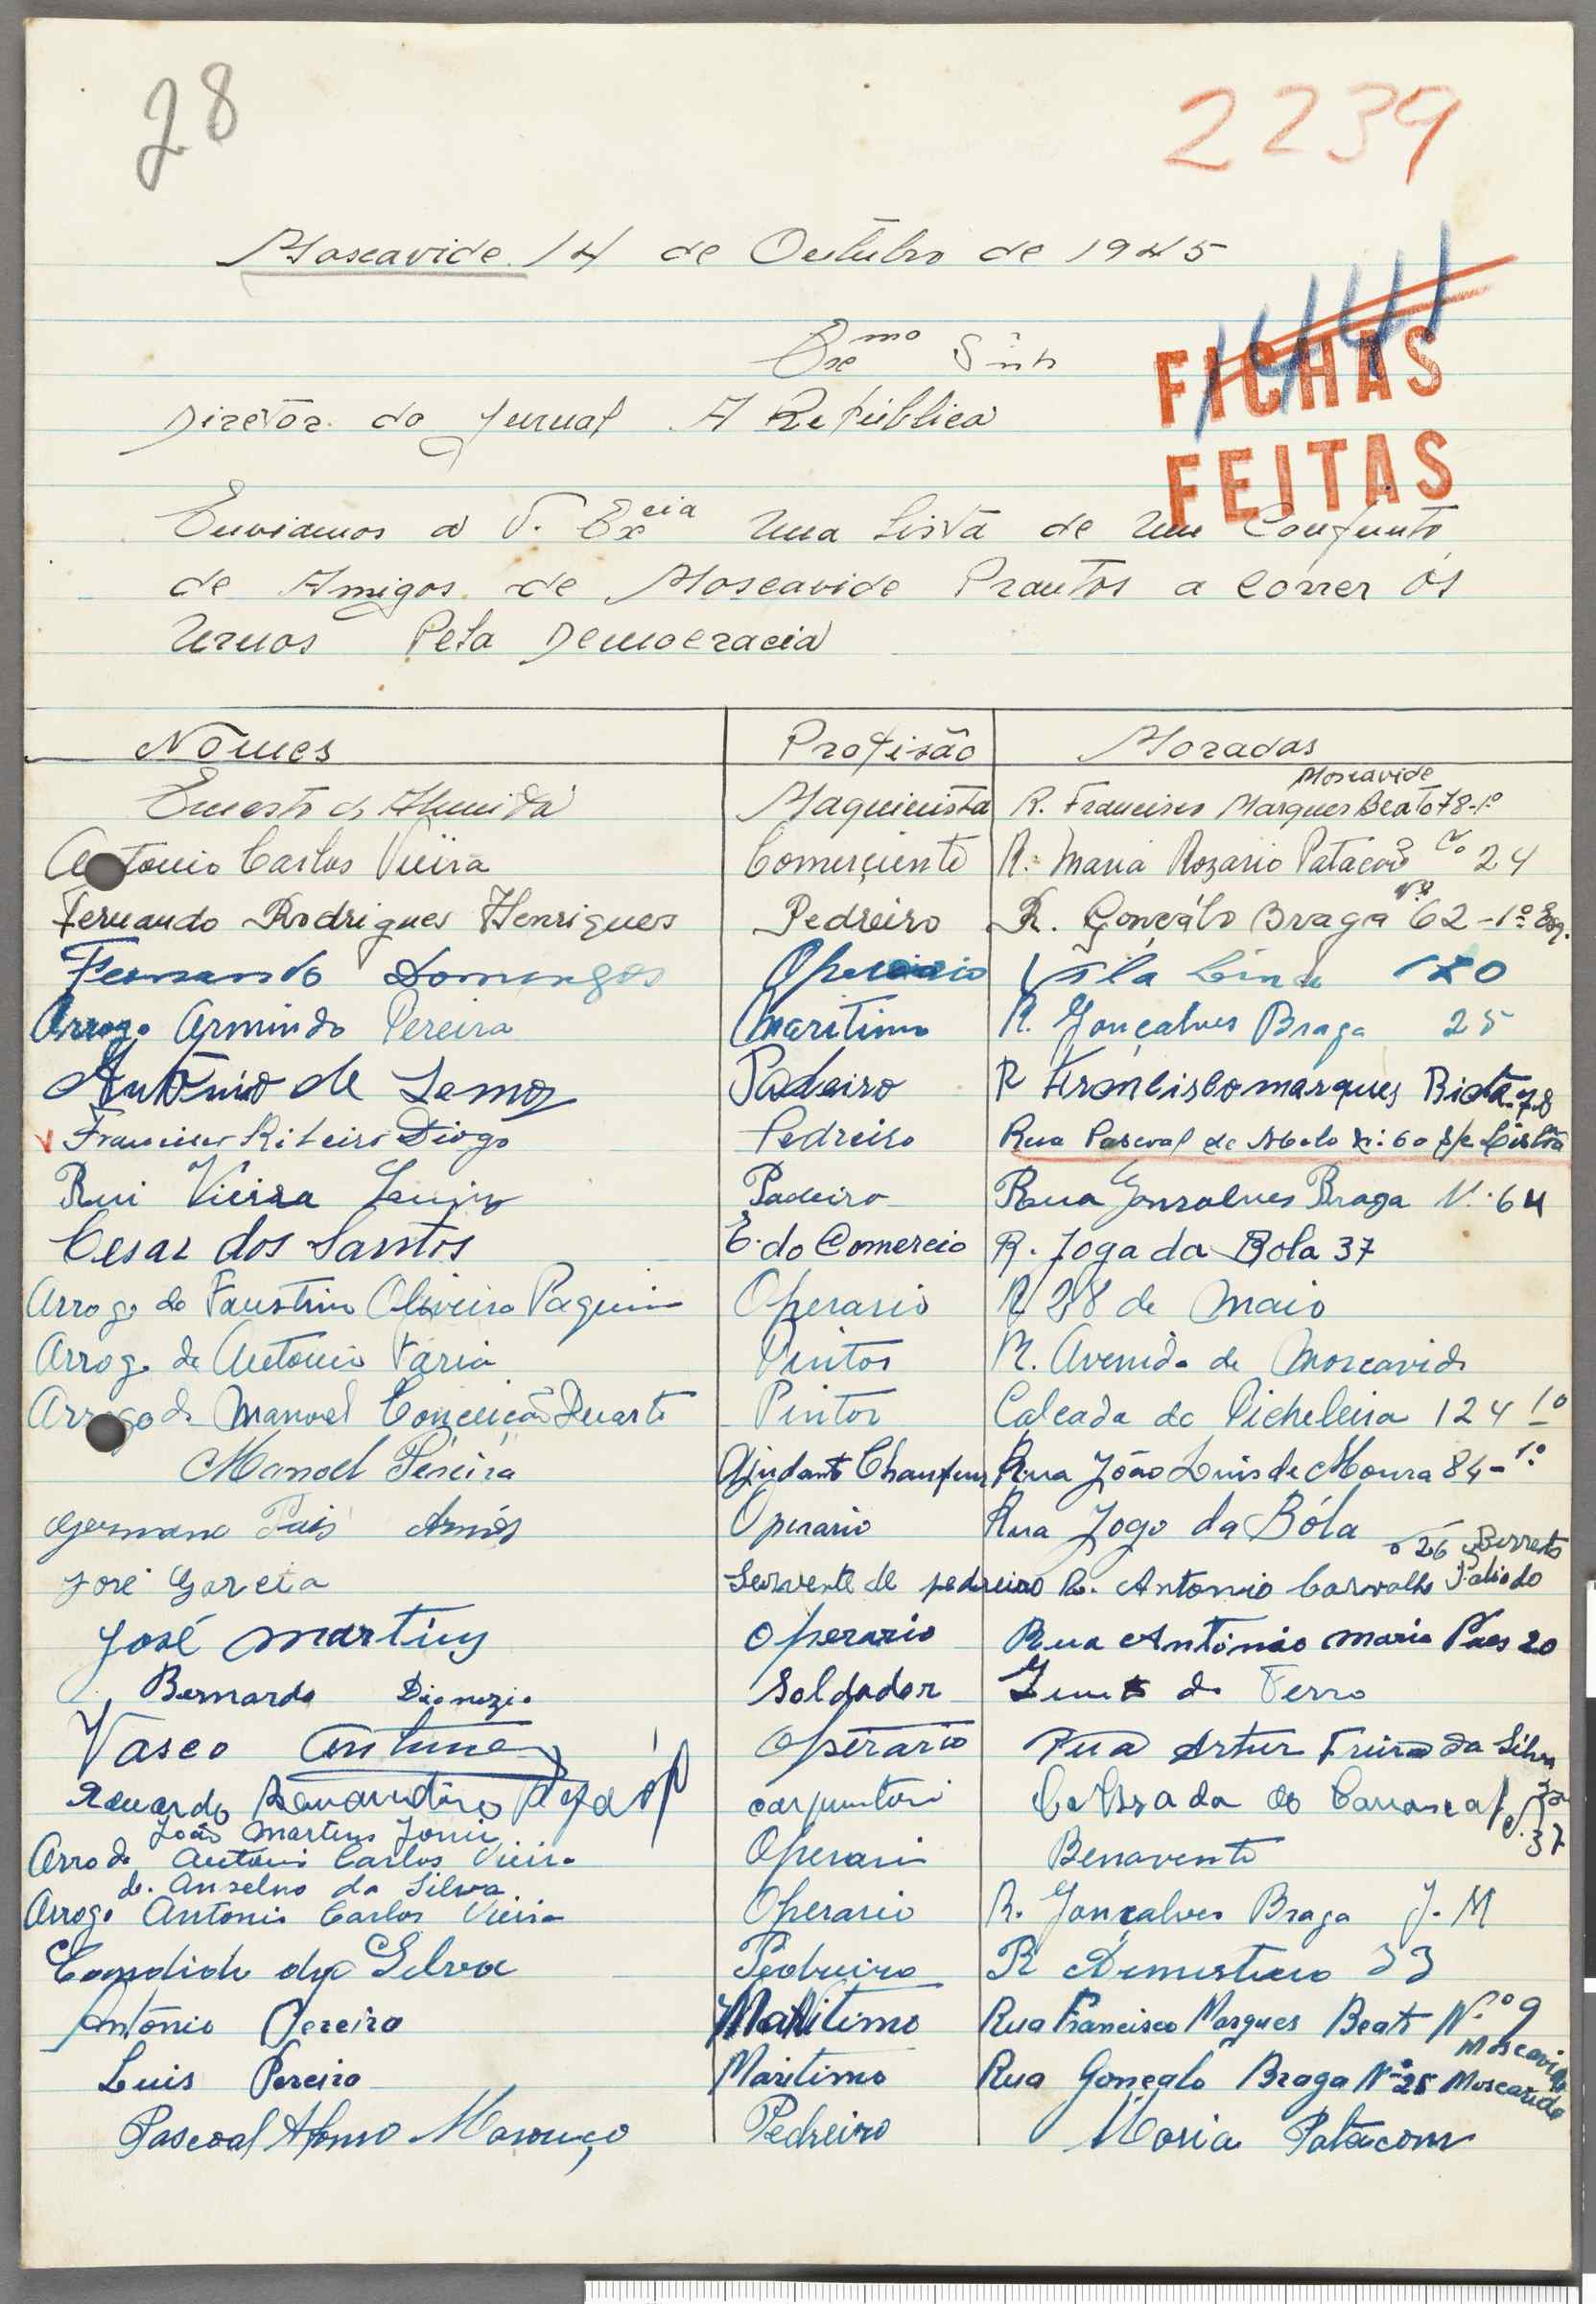 28
2239
Moscavide 14 de Outubro de 1945
1441
Exmo Snr
FICHAS
FEITAS
Diretôr do Jurnal A República
Enviamos a V. Excia Uma Lista de Um Conjunto
de Amigos de Moscavide Prontos a Correr ás
Urnas Pela Democracia
Nomes Profisão Moradas
Moscavide
Ernesto d'Almeida Maquinista R. Francisco Marques Beato 78-1º
Antonio Carlos Viéira Comerçiente R. Maria Rozario Patacão 24
Fernando Rodrigues Henriques Pedreiro R. Gonçálo Braga Nº 62-1º Esq.
Fernando Domingos Operario Vila 120
Arrogo Armindo Pereira Maritimo R. Gonçalves Braga 25
António de Lemos Padeiro R Francisco marques Biata 78
Francisco Ribeiro Diogo Pedreiro Rua Pascoal de Melo Nº: 60 Lisboa
Rui Vieira Padeiro Rua Gonsalves Braga N. 64
Cesar dos Santos E. do Comercio R. Joga da Bola 37
Arrogo de Faustino Oliveira Operario R 28 de Maio
Arrogo de Antonio Faria Pintor R. Avenida de Moscavide
Arrogo de Manoel Conceição Duarte Pintor Calcada da Picheleira 124 1º
Manoel Péreira Ajudante Chaufeur Rua João Luis de Moura 84-1º
Germano Pais Operario Rua Jogo da Bóla
26 Barreto
José Garcia Servente de pedreiro R. Antonio Carvalho Patio do
José Martins Operario Rua António Maria Paes 20
Bernardo Dionizio Soldador de Ferro
Vasco Antunes Opérario Rua Artur Freira da Silva
Eduardo carpinteiro Calsada do Carrascal
37
João Martins
Arrodo Antonio Carlos Vieira Operario Benavente
de Anselmo da Silva
Arrogo Antonio Carlos Vieira Operario R. Gonçalves Braga J. M
Candido da Silva Pedreiro R 33
António Pereira Maritimo Rua Francisco Marques Beato N.º 9
Moscavide
Luis Pereira Maritimo Rua Gonçalo Braga Nº 25 Moscavide
Pascoal Afonso Pedreiro Maria Patacom